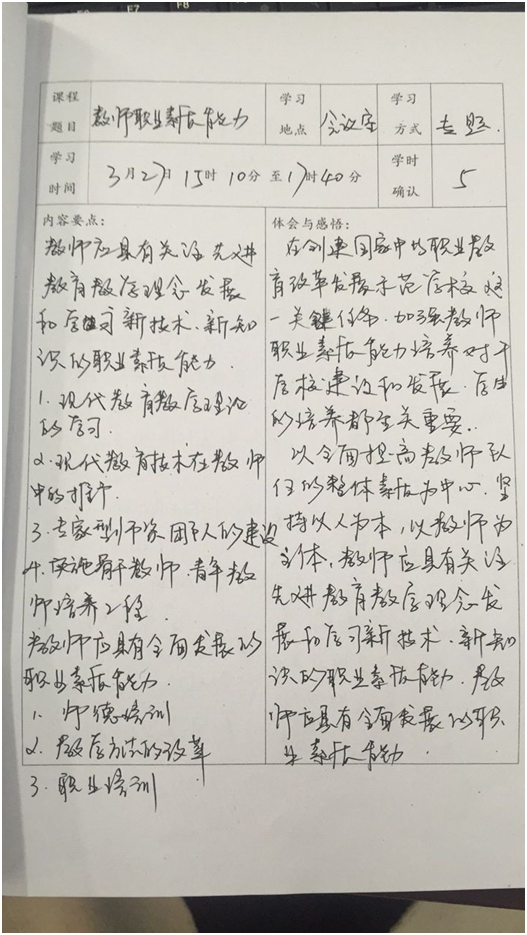 F7 F8
课程 题目 教师职业素质能力 学习 地点 会议室 学习 方式 专题
学习 时间 3月27日 15时10分至17时40分 学时 确认 5
内容要点：
教师应具有关注先进
教育教学理念发展
和学习新技术、新知
识的职业素质能力.
1. 现代教育教学理论
的学习.
2. 现代教育技术在教师
中的推广.
3. 专家型师资团队的建设
4. 实施骨干教师、青年教
师培养工程.
教师应具有全面发展的
职业素质能力.
1. 师德培训
2. 教学方法的改革
3. 职业培训
体会与感悟：
在创建国家中的职业教
育改革发展示范学校这
一关键任务，加强教师
职业素质能力培养对于
学校建设和发展、学生
的培养都至关重要.
以全面提高教师队
伍的整体素质为中心，坚
持以人为本，以教师为
主体，教师应具有关注
先进教育教学理念发
展和学习新技术、新知
识的职业素质能力，教
师应具有全面发展的职
业素质能力.